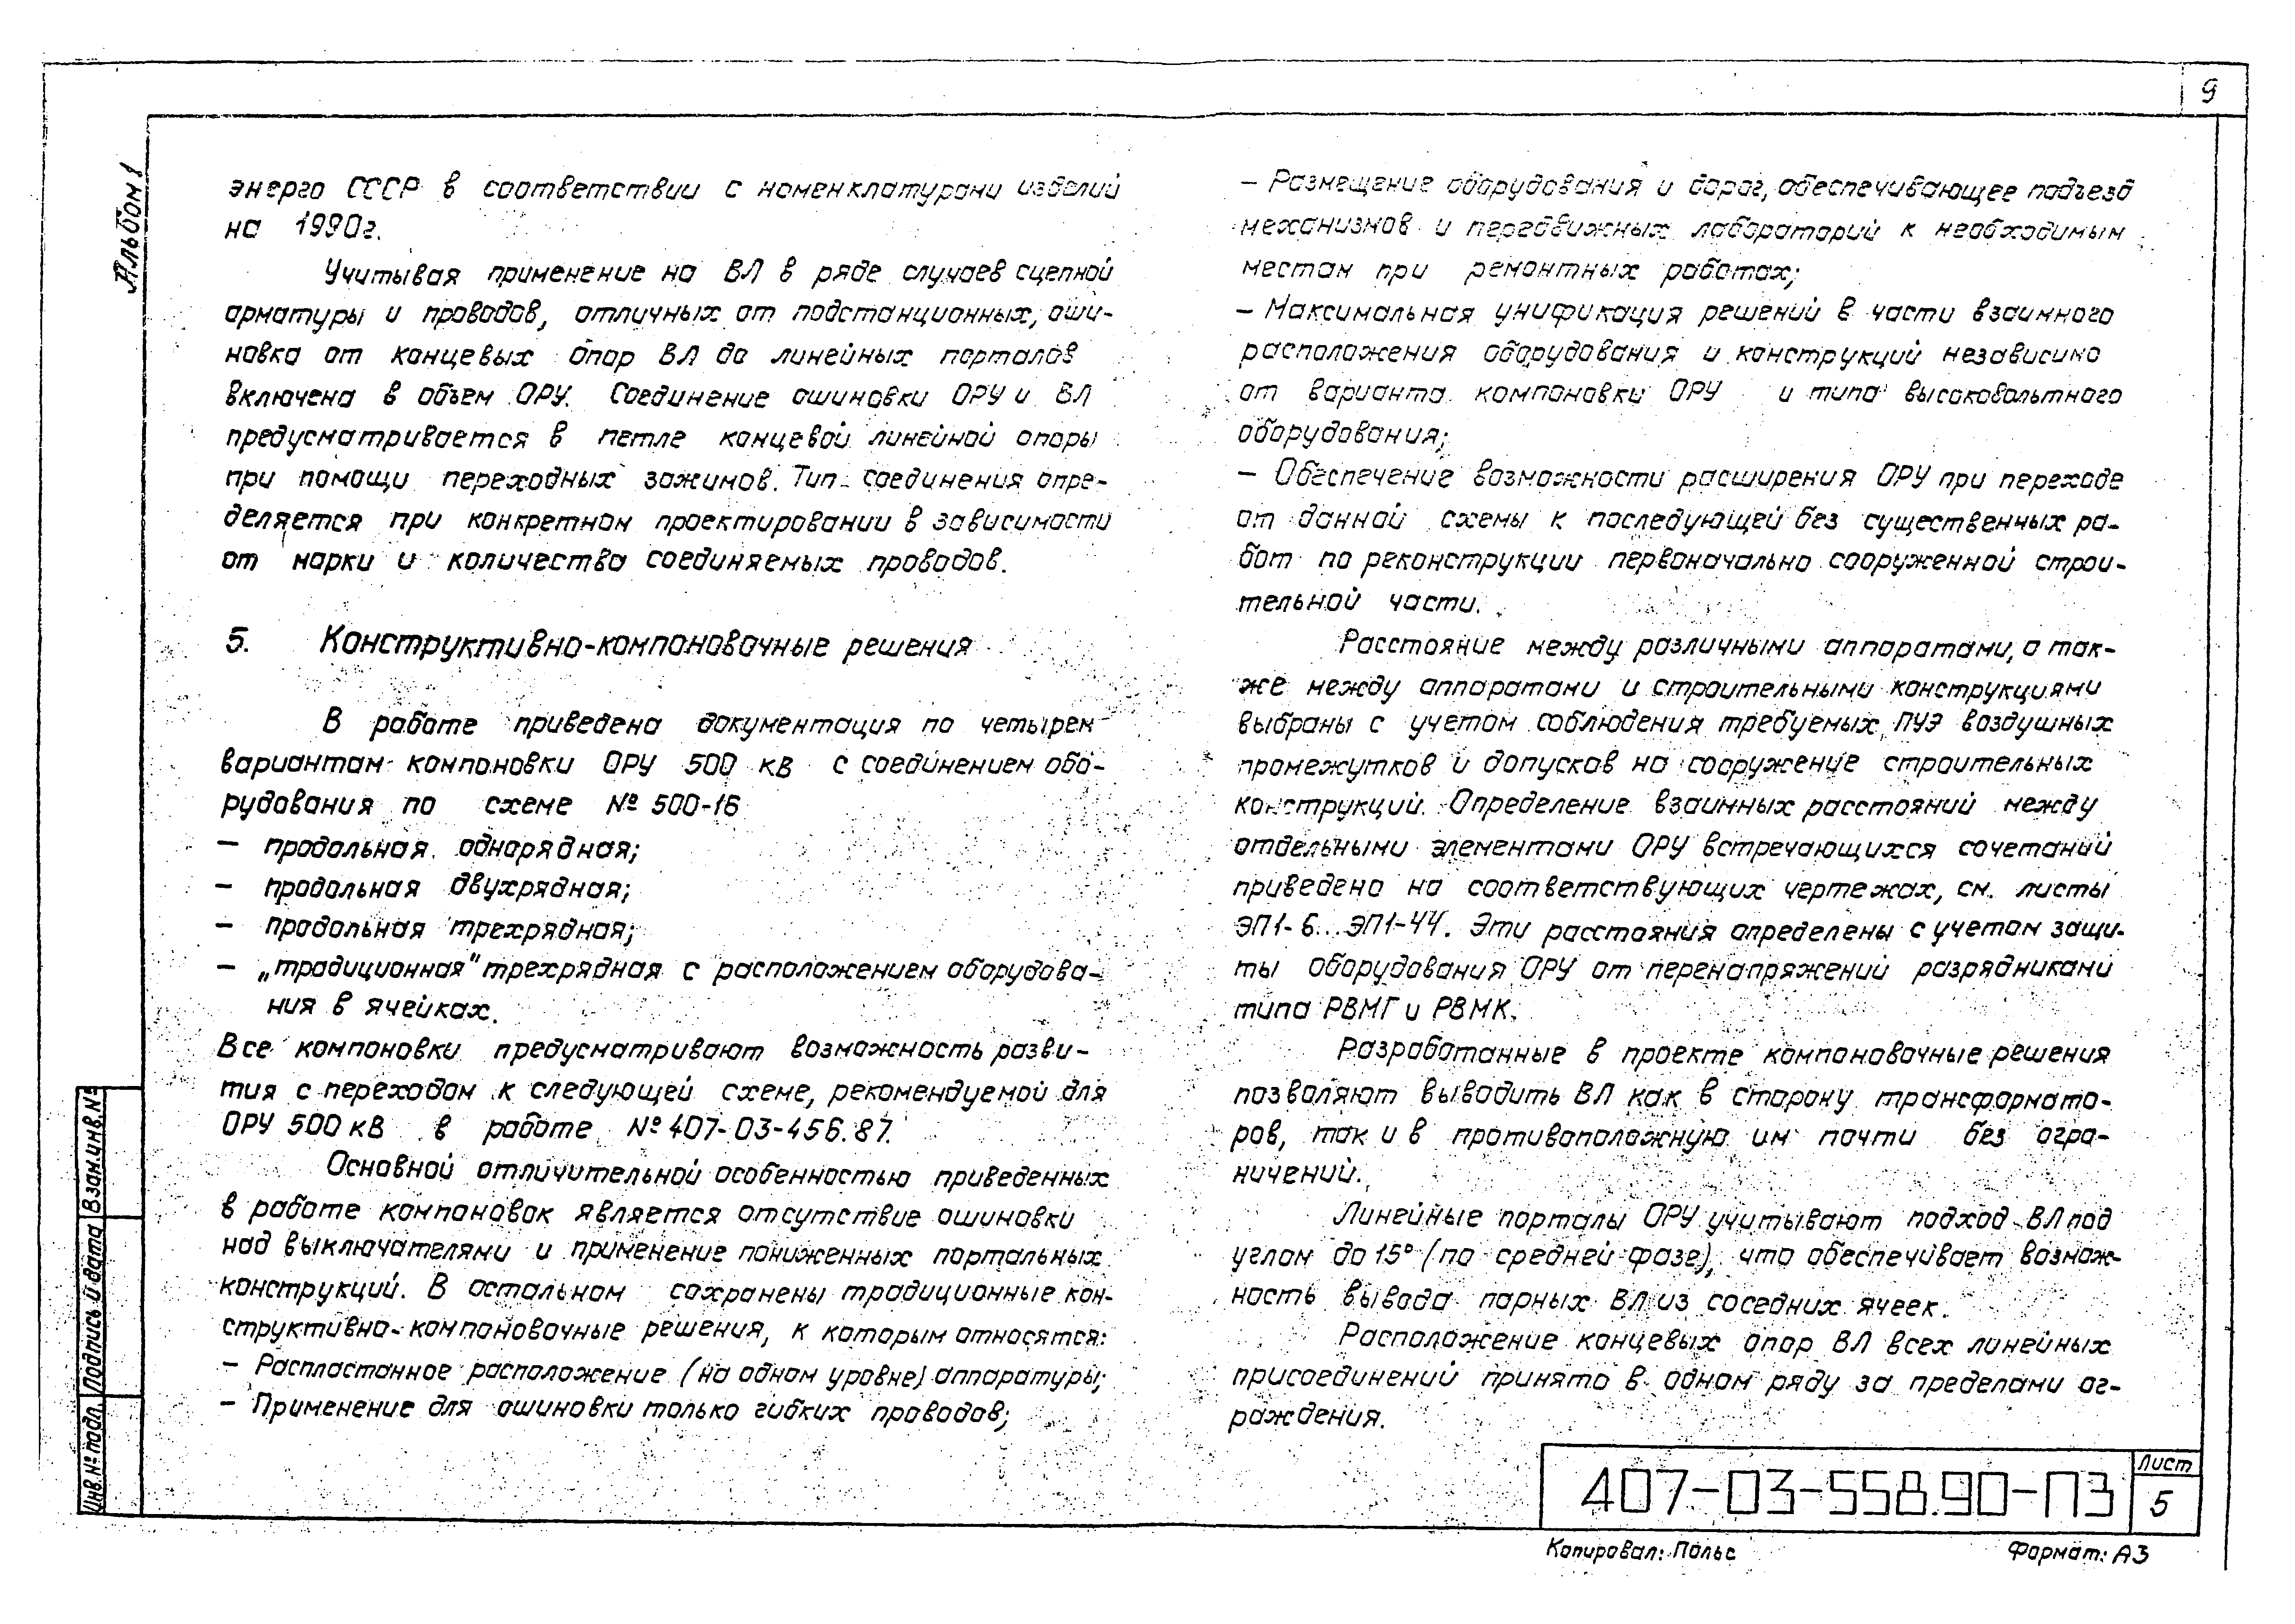 9
Альбом 1
энерго СССР в соответствии с номенклатурами изделий
на 1990г.
Учитывая применение на ВЛ в ряде случаев сцепной
арматуры и проводов, отличных от подстанционных, оши-
новка от концевых опор ВЛ до линейных порталов
включена в объем ОРУ. Соединение ошиновки ОРУ и ВЛ
предусматривается в петле концевой линейной опоры
при помощи переходных зажимов. Тип соединения опре-
деляется при конкретном проектировании в зависимости
от марки и количества соединяемых проводов.
5. Конструктивно-компоновочные решения
В работе приведена документация по четырем
вариантам компоновки ОРУ 500 кВ с соединением обо-
рудования по схеме № 500-16
— продольная однорядная;
— продольная двухрядная;
— продольная трехрядная;
— „традиционная" трехрядная с расположением оборудова-
ния в ячейках.
Все компоновки предусматривают возможность разви-
тия с переходом к следующей схеме, рекомендуемой для
ОРУ 500 кВ в работе № 407-03-456.87.
Основной отличительной особенностью приведенных
в работе компоновок является отсутствие ошиновки
над выключателями и применение пониженных портальных
конструкций. В остальном сохранены традиционные кон-
структивно-компоновочные решения, к которым относятся:
— Распластанное расположение (на одном уровне) аппаратуры;
— Применение для ошиновки только гибких проводов;
— Размещение оборудования и дорог, обеспечивающее подъезд
механизмов и передвижных лабораторий к необходимым
местам при ремонтных работах;
— Максимальная унификация решений в части взаимного
расположения оборудования и конструкций независимо
от варианта компоновки ОРУ и типа высоковольтного
оборудования;
— Обеспечение возможности расширения ОРУ при переходе
от данной схемы к последующей без существенных ра-
бот по реконструкции первоначально сооруженной строи-
тельной части.
Расстояние между различными аппаратами, а так-
же между аппаратами и строительными конструкциями
выбраны с учетом соблюдения требуемых ПУЭ воздушных
промежутков и допусков на сооружение строительных
конструкций. Определение взаимных расстояний между
отдельными элементами ОРУ встречающихся сочетаний
приведено на соответствующих чертежах, см. листы
ЭП1-6...ЭП1-44. Эти расстояния определены с учетом защи-
ты оборудования ОРУ от перенапряжений разрядниками
типа РВМГ и РВМК.
Разработанные в проекте компоновочные решения
позволяют выводить ВЛ как в сторону трансформато-
ров, так и в противоположную им почти без огра-
ничений.
Линейные порталы ОРУ учитывают подход ВЛ под
углом до 15° (по средней фазе), что обеспечивает возмож-
ность вывода парных ВЛ из соседних ячеек.
Расположение концевых опор ВЛ всех линейных
присоединений принято в одном ряду за пределами ог-
раждения.
Инв.№ подл. Подпись и дата Взам.инв.№
407-03-558.90-ПЗ
Лист
5
Копировал: Польс
Формат: А3